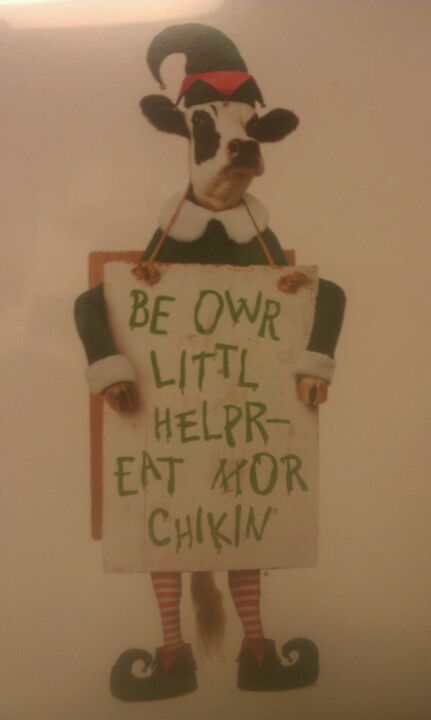 BE OWR
LITTL
HELPR-
EAT MOR
CHIKIN®
®